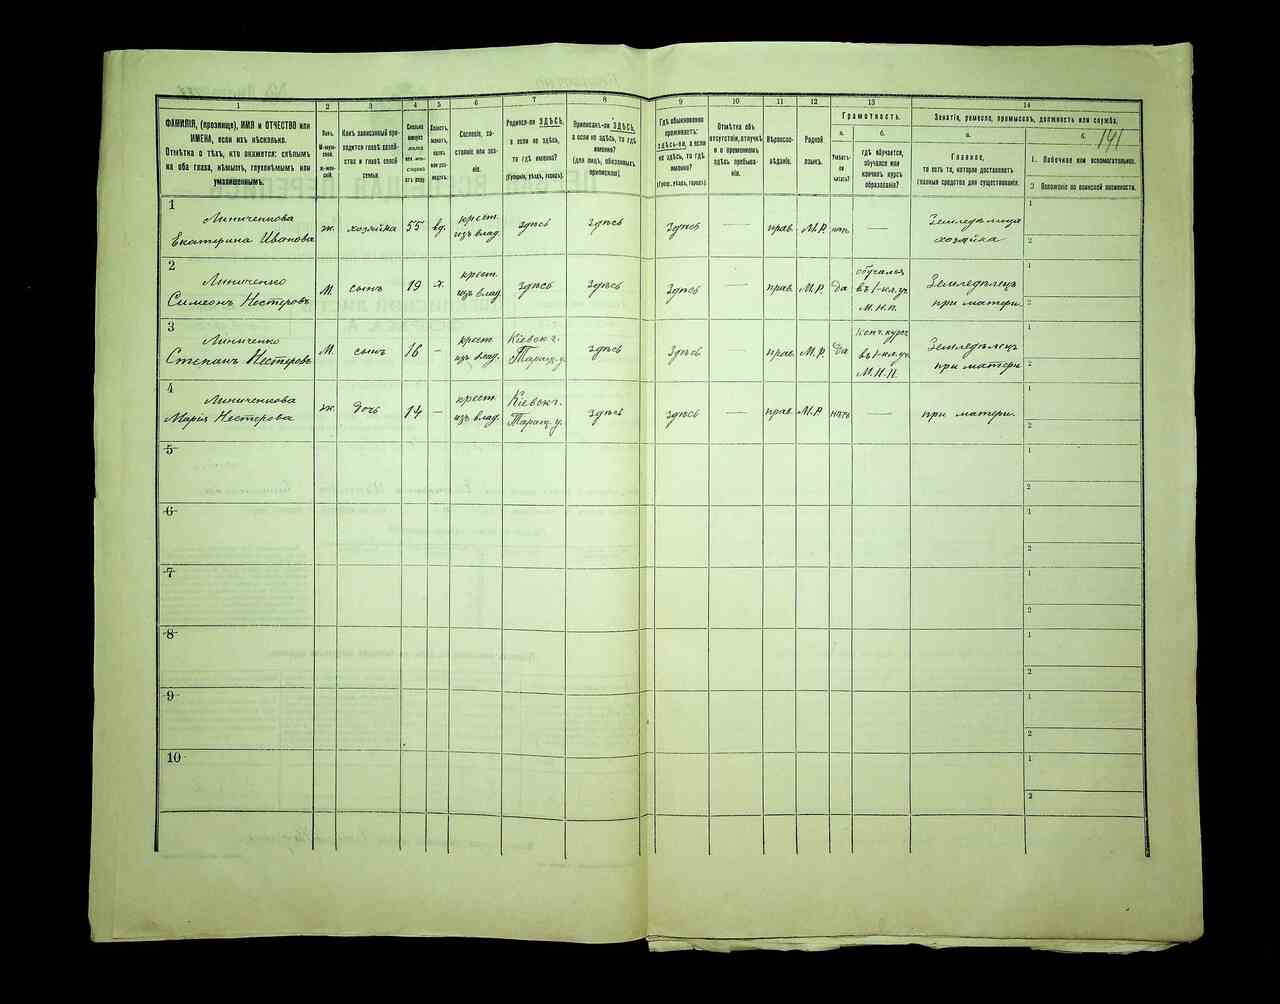 1
2
3
4
5
6
7
8
9
10
11
12
13
14
ФАМИЛІЯ, (прозвище), ИМЯ и ОТЧЕСТВО или
ИМЕНА, если ихъ нѣсколько.
Отмѣтка о тѣхъ, кто окажется: слѣпымъ
на оба глаза, нѣмымъ, глухонѣмымъ или
умалишеннымъ.
Полъ.
М-мужской.
Ж-женскій.
Какъ записанный приходится
главѣ хозяйства и главѣ своей
семьи.
Сословіе, состояніе
или званіе.
Родился-ли ЗДѢСЬ,
а если не здѣсь,
то гдѣ именно?
(Губернія, уѣздъ, городъ).
Приписанъ-ли ЗДѢСЬ,
а если не здѣсь, то гдѣ
именно?
(для лицъ, обязанныхъ
припискою).
Гдѣ обыкновенно
проживаетъ:
здѣсь-ли, а если
не здѣсь, то гдѣ
именно?
(Губер., уѣздъ, городъ).
Отмѣтка объ
отсутствіи, отлучкѣ
и о временномъ
здѣсь пребываніи.
Вѣроисповѣданіе.
Родной
языкъ.
Грамотность.
а.
Умѣетъ-ли
читать?
б.
гдѣ обучается,
обучался или
кончилъ курсъ
образованія?
Занятіе, ремесло, промыселъ, должность или служба.
а.
Главное,
то есть то, которое доставляетъ
главныя средства для существованія.
б.
141
1. Побочное или вспомогательное.
2 Положеніе по воинской повинности.
1
Линиченкова
Екатерина Иванова
ж.
хозяйка
55
вд.
крест.
изъ влад.
здѣсь
здѣсь
здѣсь
—
прав.
М.Р.
нѣтъ
—
Земледѣлица
хозяйка
1
2
2
Линиченко
Симеонъ Нестеровъ
М.
сынъ
19
х.
крест.
изъ влад.
здѣсь
здѣсь
здѣсь
—
прав.
М.Р.
да
обучался
въ 1-кл. уч.
М.Н.П.
Земледѣлецъ
при матери.
1
2
3
Линиченко
Степанъ Нестеровъ
М.
сынъ
16
—
крест
изъ влад.
Кіевск. г.
Таращ. у.
здѣсь
здѣсь
—
прав.
М.Р.
Да
Конч. курсъ
въ 1-кл. уч.
М.Н.П.
Земледѣлецъ
при матери
1
2
4
Линиченкова
Марія Нестерова
ж.
дочь
14
—
крест.
изъ влад.
Кіевск. г.
Таращ. у.
здѣсь
здѣсь
—
прав.
М.Р.
нѣтъ
—
при матери.
1
2
5
1
2
6
1
2
7
1
2
8
1
2
9
1
2
10
1
2